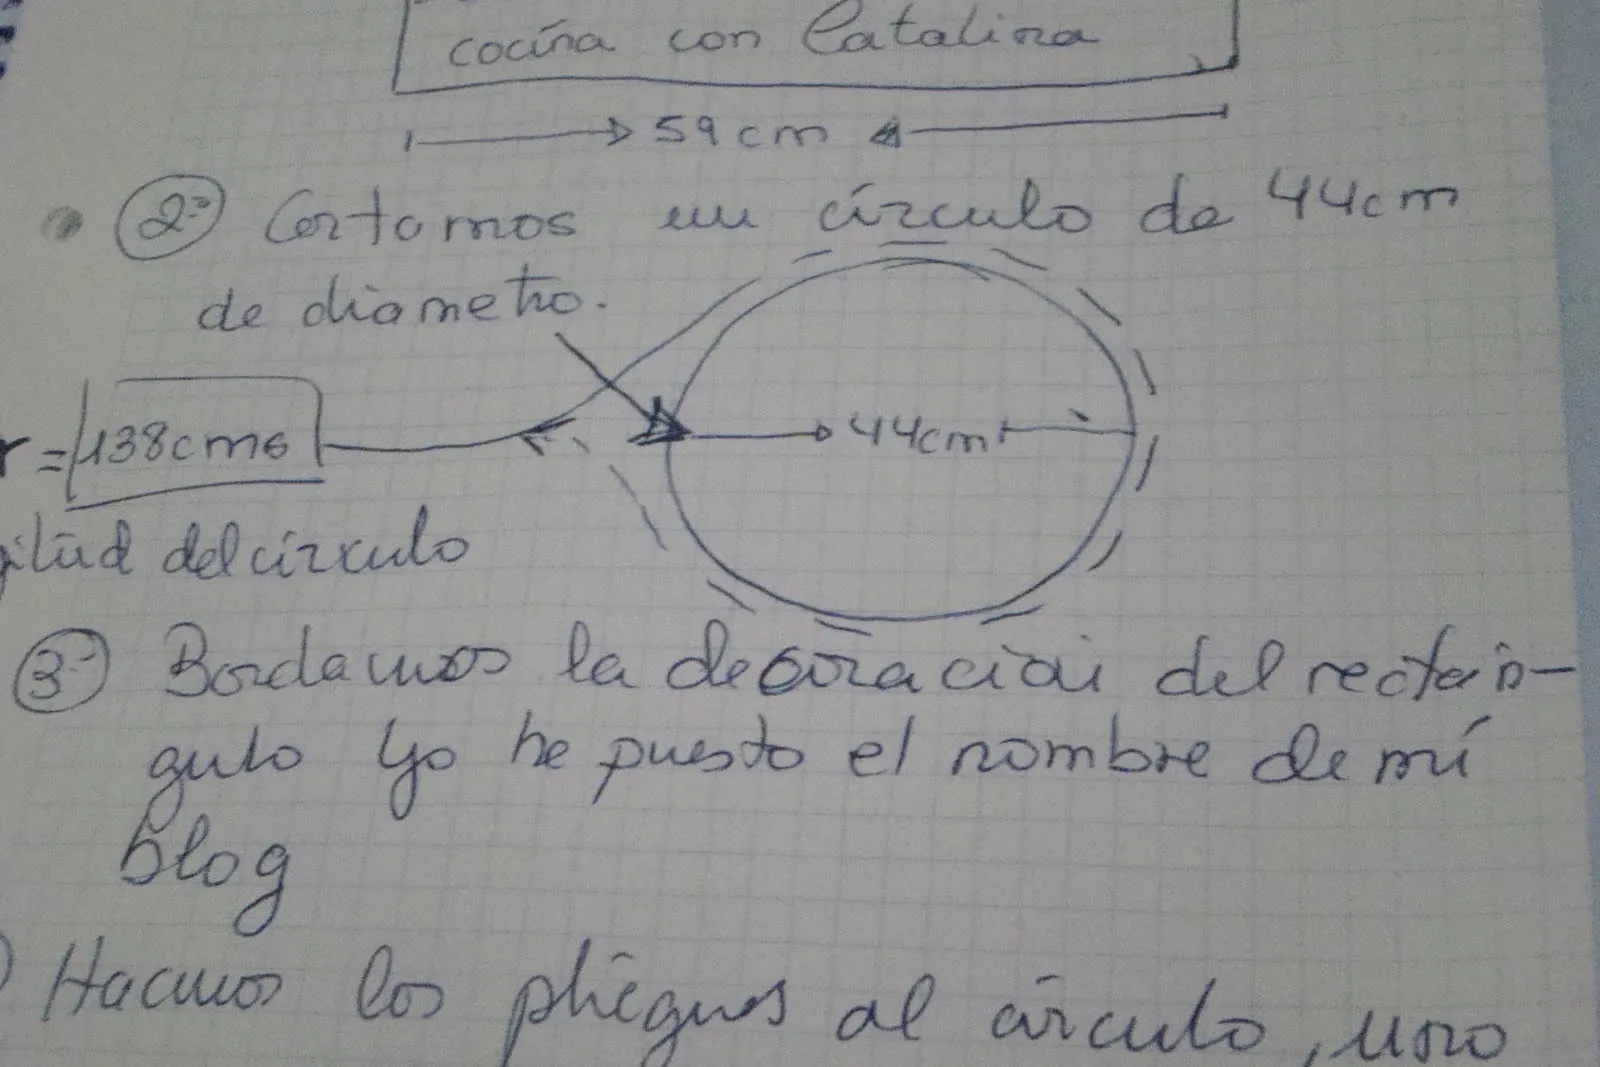 cocina con Catalina
59 cm
2º Cortamos un círculo de 44cm
de diametro.
44cm
r = 138cms
gitud del círculo
3º Bordamos la decoración del rectán-
gulo Yo he puesto el nombre de mi
blog
Hacemos los pliegues al círculo, uno